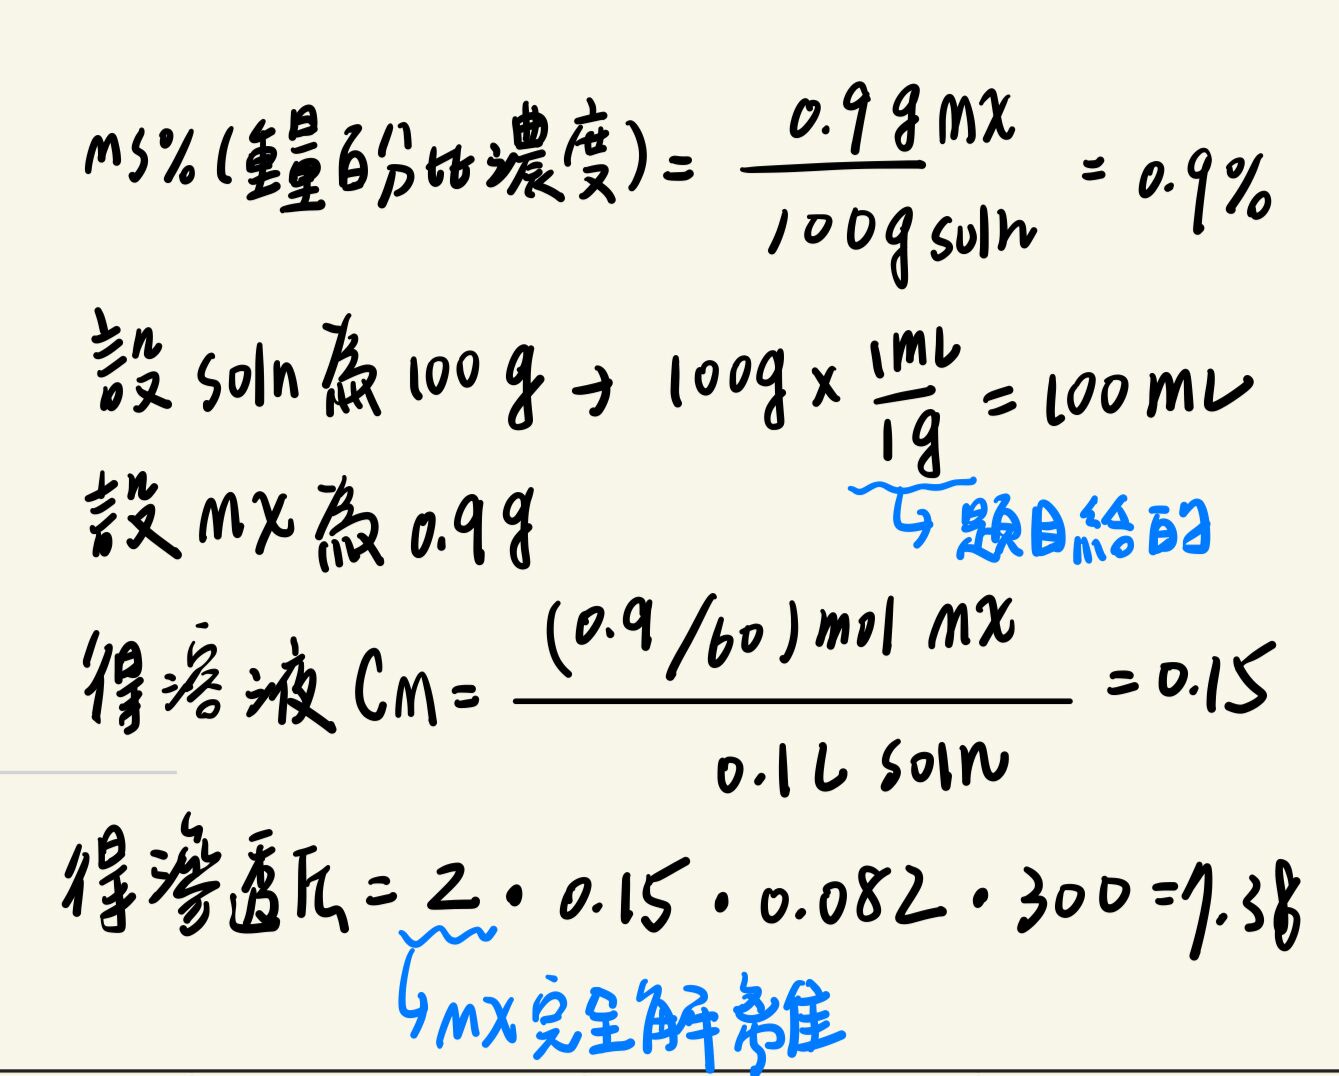 mS%(重量百分比濃度) = 0.9 g MX / 100g soln = 0.9%
設 soln 為 100 g → 100g x 1mL / 1g = 100 mL
設 MX 為 0.9g
題目給的
得溶液 CM = (0.9/60) mol MX / 0.1L soln = 0.15
得滲透压 = 2 · 0.15 · 0.082 · 300 = 7.38
MX完全解離